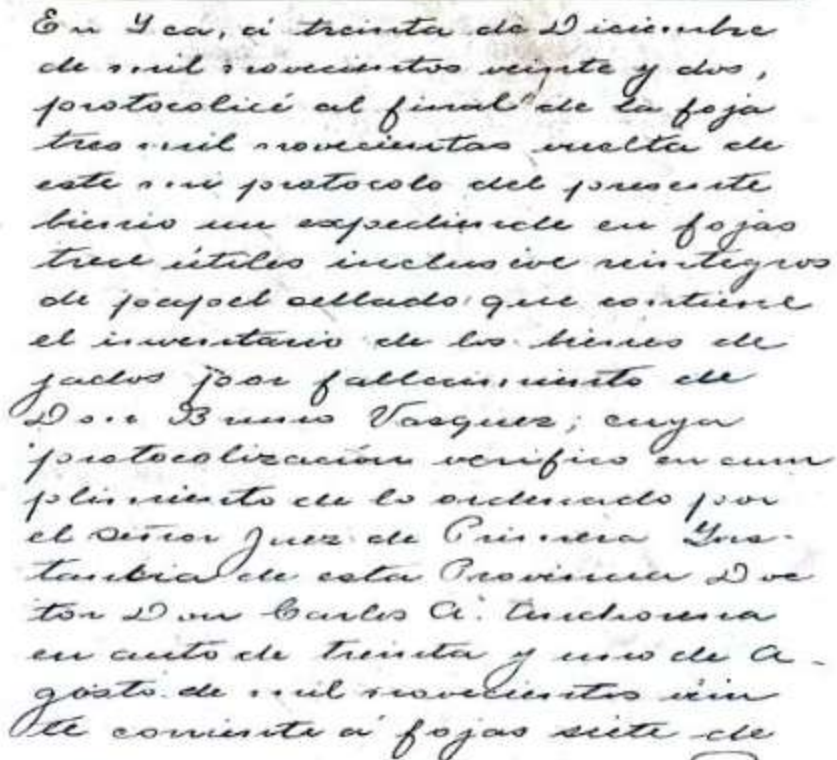 En Yca, á treinta de Diciembre
de mil novecientos veinte y dos,
protocolicé al final de la foja
tres mil novecientas vuelta de
este mi protocolo del presente
bienio un expediende en fojas
trece útiles inclusive reintegros
de papel sellado que contiene
el inventario de los bienes de
jados por fallecimiento de
Don Bruno Vasquez; cuya
protocolización verifico en cum
plimiento de lo ordenado por
el Señor Juez de Primera Yns-
tanbia de esta Provincia Doc
tor Don Carlos A.
en auto de treinta y uno de A-
gosto de mil novecientos vein
te corriente á fojas siete de